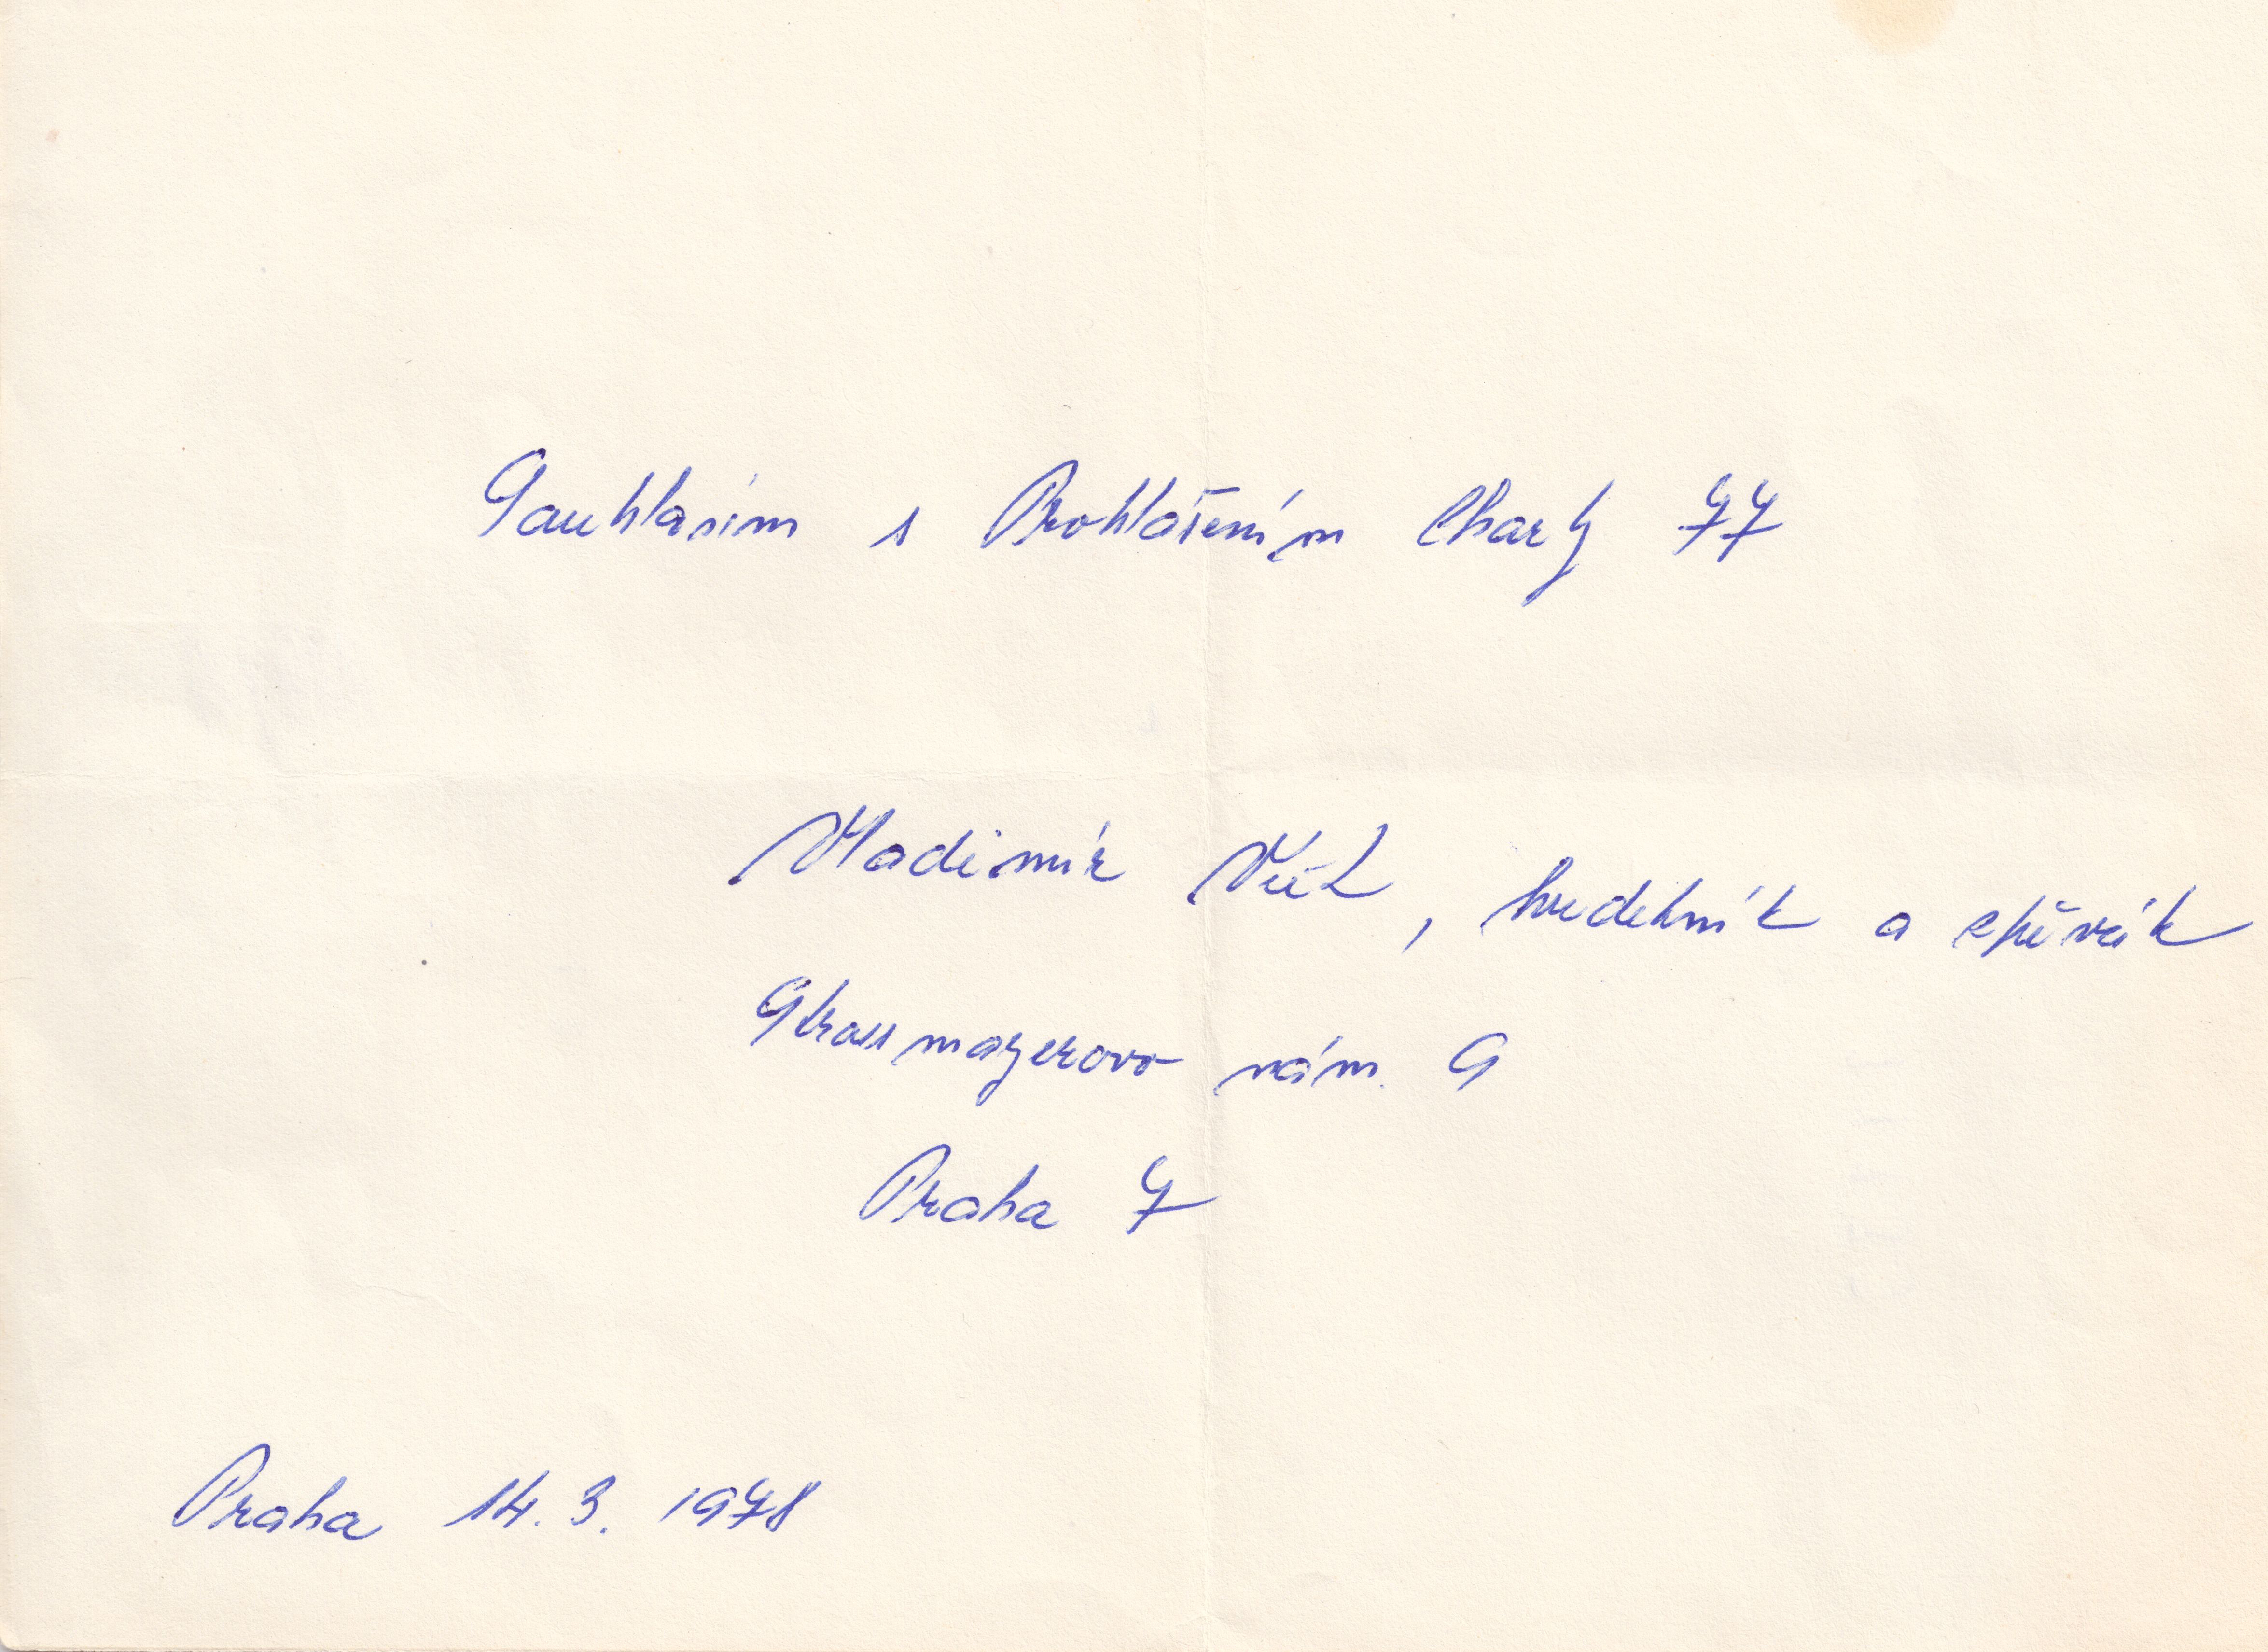 Souhlasím s Prohlášením Charty 77
Vladimír , hudebník a zpěvák
Strossmayerovo nám. 9
Praha 7
Praha 14. 3. 1978